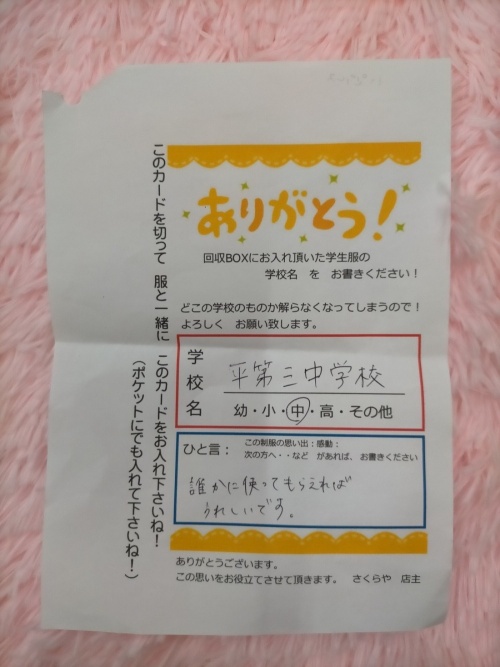 ありがとう!
回収BOXにお入れ頂いた学生服の
学校名 を お書きください!
どこの学校のものか解らなくなってしまうので!
よろしく お願い致します。
学校名
平第三中学校
幼・小・中・高・その他
ひと言:
この制服の思い出:感動:
次の方へ・・など があれば、お書きください
誰かに使ってもらえれば
うれしいです。
ありがとうございます。
この思いをお役立てさせて頂きます。 さくらや 店主
このカードを切って 服と一緒に このカードをお入れ下さいね!
(ポケットにでも入れて下さいね!)